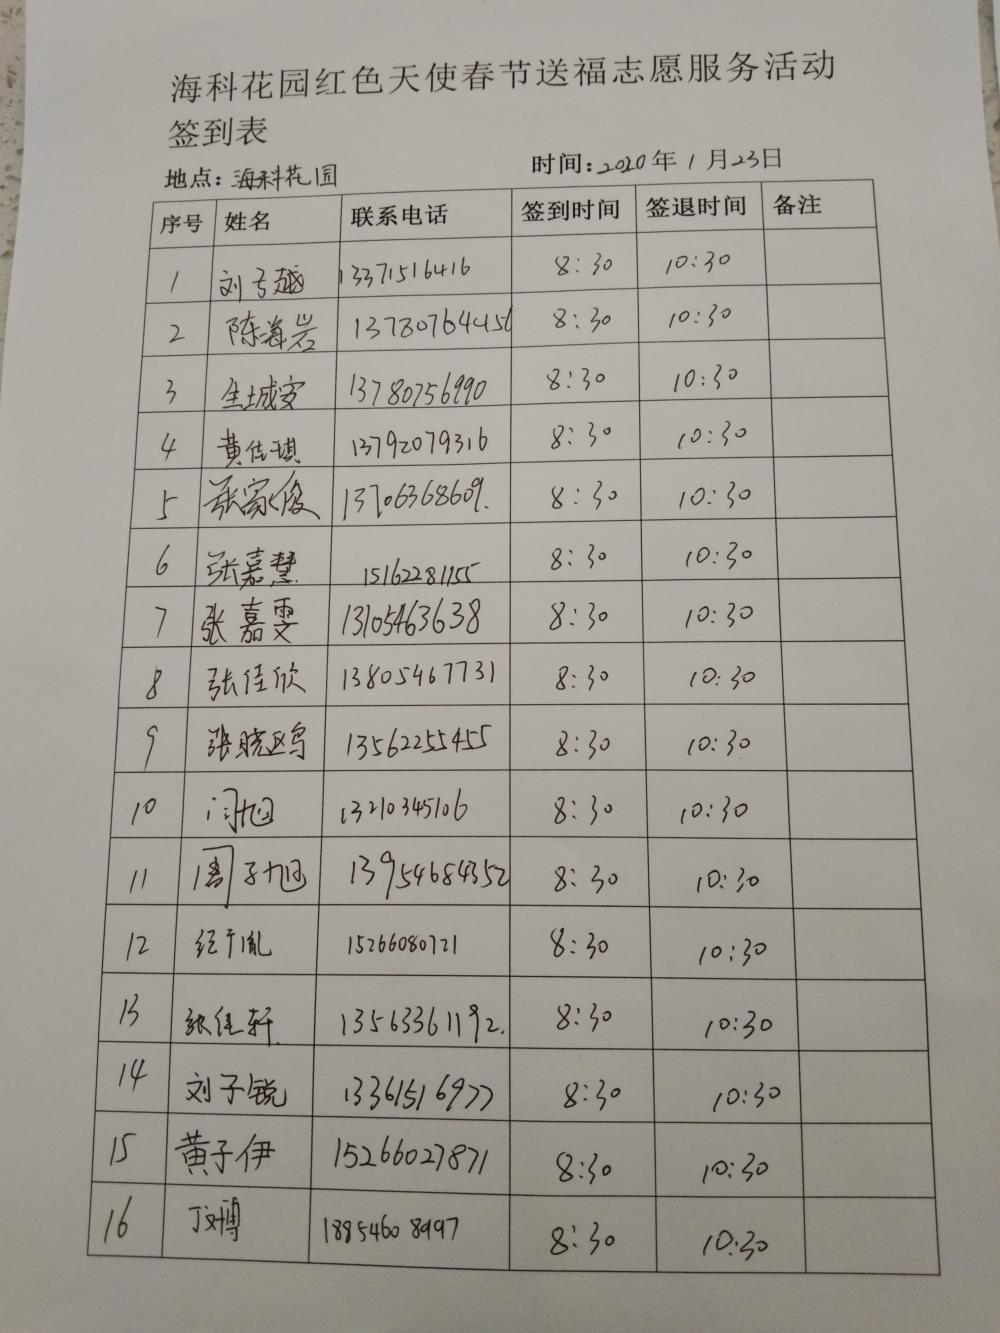 海科花园红色天使春节送福志愿服务活动
签到表
地点:海科花园 时间:2020年1月23日
序号 姓名 联系电话 签到时间 签退时间 备注
1 刘子越 13371516416 8:30 10:30
2 陈海岩 13780764456 8:30 10:30
3 生城安 13780756990 8:30 10:30
4 黄佳琪 13792079316 8:30 10:30
5 张家俊 13706368609. 8:30 10:30
6 张嘉慧 15162281155 8:30 10:30
7 张嘉雯 13105463638 8:30 10:30
8 张佳欣 13805467731 8:30 10:30
9 张晓鸥 13562255455 8:30 10:30
10 闫旭 13210345106 8:30 10:30
11 周子旭 13954684352 8:30 10:30
12 纪于胤 15266080721 8:30 10:30
13 张佳轩 13563361192. 8:30 10:30
14 刘子锐 13361516977 8:30 10:30
15 黄子伊 15266027871 8:30 10:30
16 丁文博 18854608997 8:30 10:30